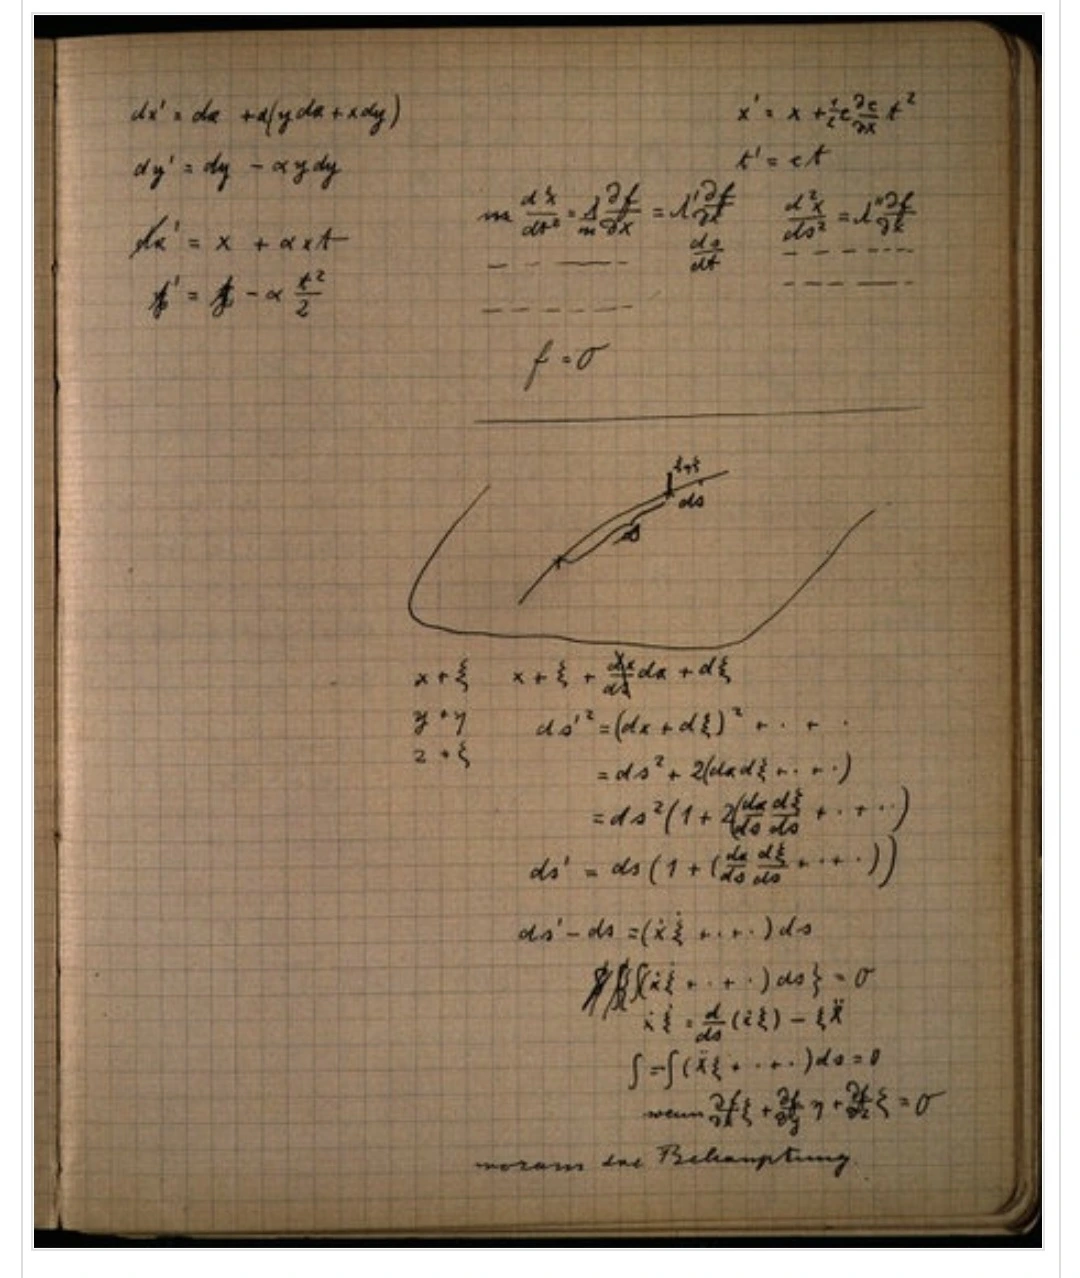 dx' = dx + α(y dx + x dy)
dy' = dy − α y dy
dx' = x + α x t
t' = t − α t²/2
x' = x + 1/2 c ∂c/∂x t²
t' = c t
m d²x/dt² = λ/m ∂f/∂x = λ' ∂f/∂x
ds/dt
d²x/ds² = λ'' ∂f/∂x
f = 0
ds'
x + ξ
y + η
z + ζ
x + ξ + dx/ds dx + dξ
ds'² = (dx + dξ)² + · + ·
= ds² + 2(dx dξ + · + ·)
= ds²(1 + 2(dx/ds dξ/ds + · + ·)
ds' = ds(1 + (dx/ds dξ/ds + · + ·))
ds' − ds = (ẋ ξ̇ + · + ·) ds
∫(ẋ ξ̇ + · + ·) ds} = 0
ẋ ξ̇ = d/ds (ẋ ξ) − ξ ẍ
∫ = ∫(ẍ ξ + · + ·) ds = 0
wenn ∂f/∂x ξ + ∂f/∂y η + ∂f/∂z ζ = 0
woraus die Behauptung.